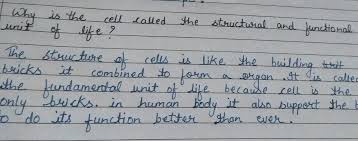 Why is the cell called the structural and functional
unit of life?
The structure of cells is like the building
bricks it combined to form a organ. It is called
the fundamental unit of life because cell is the
only bricks. in human body it also support the
to do its function better than ever.